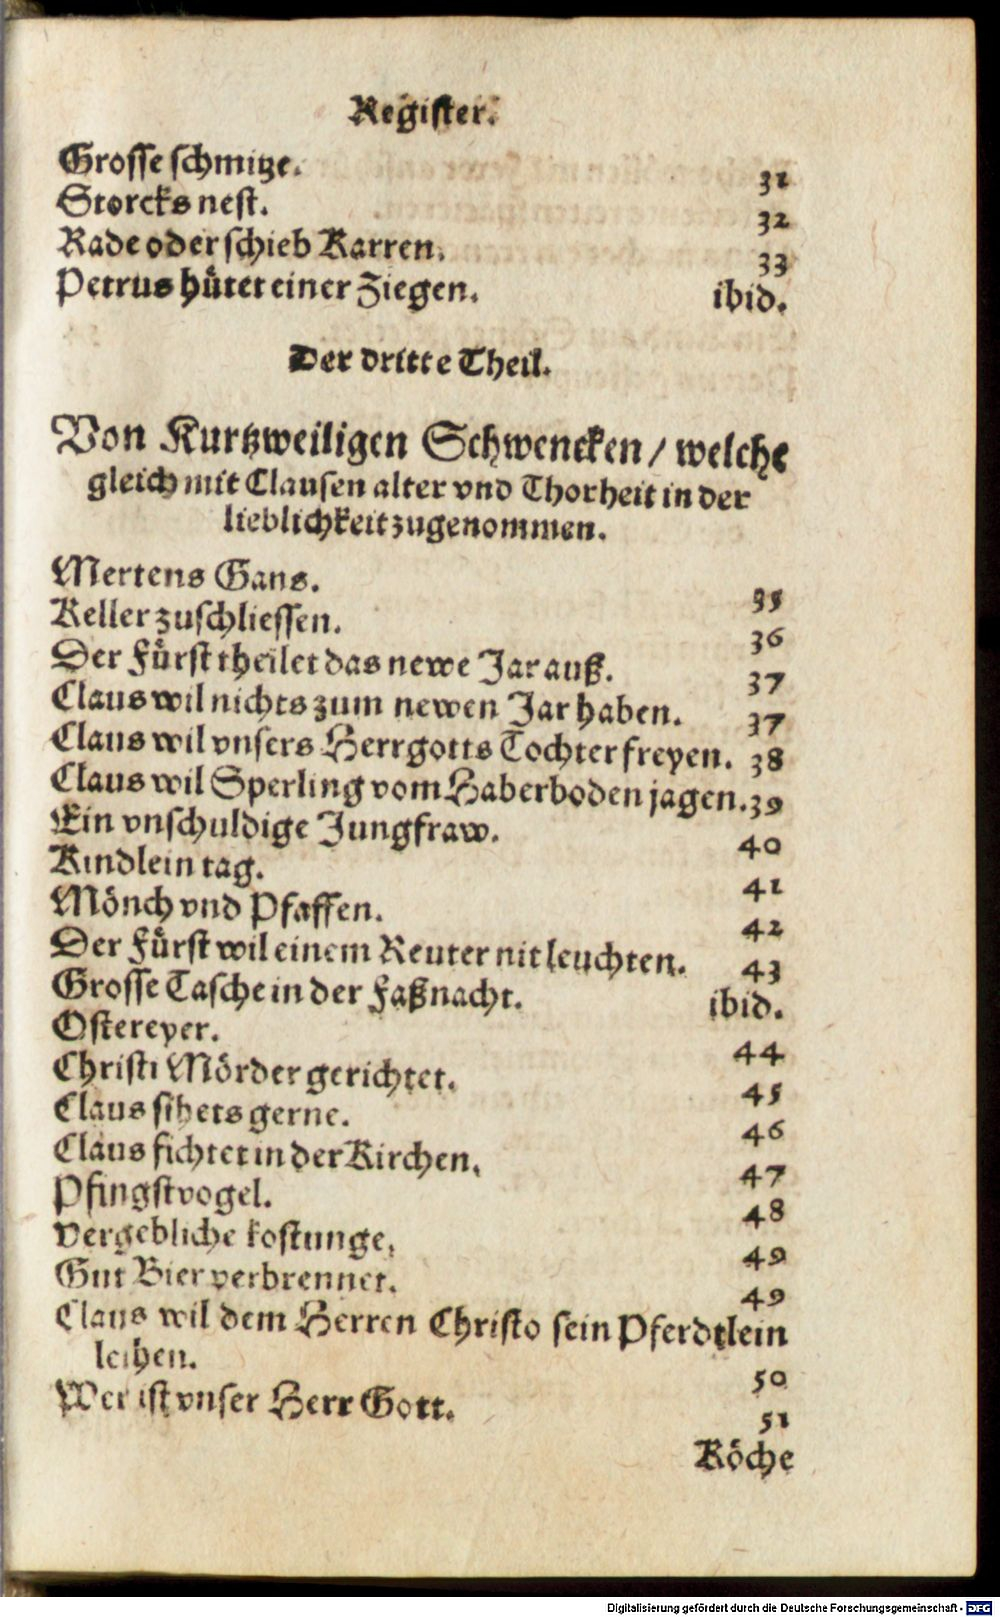 Register.
Grosse schmitze. 31
Storcks nest. 32
Rade oder schieb Karren. 33
Petrus hütet einer Ziegen. ibid.
Der dritte Theil.
Von Kurtzweiligen Schwencken / welche
gleich mit Clausen alter vnd Thorheit in der
lieblichkeit zugenommen.
Mertens Gans. 35
Keller zuschliessen. 36
Der Fürst theilet das newe Jar auß. 37
Claus wil nichts zum newen Jar haben. 37
Claus wil vnsers Herrgotts Tochter freyen. 38
Claus wil Sperling vom Haberboden jagen. 39
Ein vnschuldige Jungfraw. 40
Kindlein tag. 41
Mönch vnd Pfaffen. 42
Der Fürst wil einem Reuter nit leuchten. 43
Grosse Tasche in der Faßnacht. ibid.
Ostereyer. 44
Christi Mörder gerichtet. 45
Claus sihets gerne. 46
Claus fichtet in der Kirchen. 47
Pfingstvogel. 48
Vergebliche kostunge. 49
Gut Bier verbrennet. 49
Claus wil dem Herren Christo sein Pferdtlein
leihen. 50
Wer ist vnser Herr Gott. 51
Köche
Digitalisierung gefördert durch die Deutsche Forschungsgemeinschaft - DFG